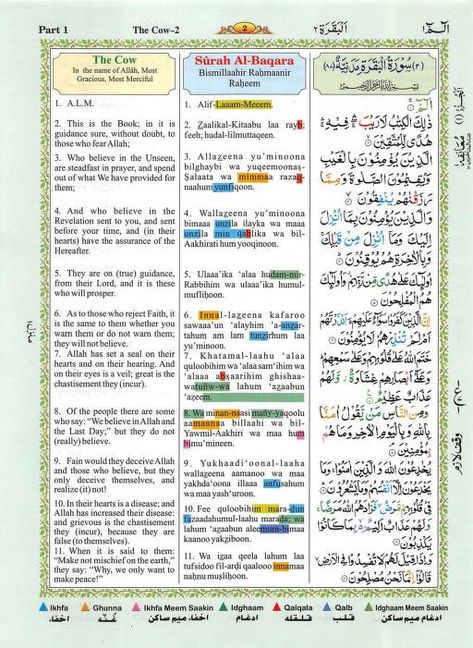 Part 1
The Cow–2
2
اَلْبَقَرَة ٢
الٓمّٓ ١
The Cow
In the name of Allâh, Most
Gracious, Most Merciful
1. A.L.M.
2. This is the Book; in it is
guidance sure, without doubt, to
those who fear Allah;
3. Who believe in the Unseen,
are steadfast in prayer, and spend
out of what We have provided for
them;
4. And who believe in the
Revelation sent to you, and sent
before your time, and (in their
hearts) have the assurance of the
Hereafter.
5. They are on (true) guidance,
from their Lord, and it is these
who will prosper.
6. As to those who reject Faith, it
is the same to them whether you
warn them or do not warn them;
they will not believe.
7. Allah has set a seal on their
hearts and on their hearing. And
on their eyes is a veil; great is the
chastisement they (incur).
8. Of the people there are some
who say: "We believe in Allah and
the Last Day;" but they do not
(really) believe.
9. Fain would they deceive Allah
and those who believe, but they
only deceive themselves, and
realize (it) not!
10. In their hearts is a disease; and
Allah has increased their disease:
and grievous is the chastisement
they (incur), because they are
false (to themselves).
11. When it is said to them:
"Make not mischief on the earth,"
they say: "Why, we only want to
make peace!"
Sûrah Al-Baqara
Bismillaahir Raḥmaanir
Raheem
1. Alif-Laaam-Meeem.
2. Zaalikal-Kitaabu laa rayb;
feeh; hudal-lilmuttaqeen.
3. Allazeena yu'minoona
bilghaybi wa yuqeemoonaṣ-
Ṣalaata wa mimmaa razaq-
naahum yunfiqoon.
4. Wallazeena yu'minoona
bimaaa unzila ilayka wa maaa
unzila min qablika wa bil-
Aakhirati hum yooqinoon.
5. Ulaaa'ika 'alaa hudam-mir-
Rabbihim wa ulaaa'ika humul-
mufliḥoon.
6. Innal-lazeena kafaroo
sawaaa'un 'alayhim 'a-anzar-
tahum am lam tunzirhum laa
yu'minoon.
7. Khatamal-laahu 'alaa
quloobihim wa 'alaa sam'ihim wa
'alaaa abṣaarihim ghishaa-
watuñw-wa lahum 'aẓaabun
'aẓeem.
8. Wa minan-naasi mañy-yaqoolu
aamannaa billaahi wa bil-
Yawmil-Aakhiri wa maa hum
bimu'mineen.
9. Yukhaadi'oonal-laaha
wallazeena aamanoo wa maa
yakhda'oona illaaa anfusahum
wa maa yash'uroon.
10. Fee quloobihim mara-ḍun
fazaadahumul-laahu maraḍa; wa
lahum 'aẓaabun aleemum-bimaa
kaanoo yakẓiboon.
11. Wa iẓaa qeela lahum laa
tufsidoo fil-arḍi qaalooo innamaa
naḥnu muṣliḥoon.
(٢) سُوْرَةُ الْبَقَرَةِ مَدَنِيَّةٌ (٨٧)
بِسْمِ اللّٰهِ الرَّحْمٰنِ الرَّحِيْمِ
الٓمّٓ
ذٰلِكَ الْكِتٰبُ لَا رَيْبَ فِيْهِ
هُدًى لِّلْمُتَّقِيْنَ
الَّذِيْنَ يُؤْمِنُوْنَ بِالْغَيْبِ
وَيُقِيْمُوْنَ الصَّلٰوةَ وَمِمَّا
رَزَقْنٰهُمْ يُنْفِقُوْنَ
وَالَّذِيْنَ يُؤْمِنُوْنَ بِمَآ اُنْزِلَ
اِلَيْكَ وَمَآ اُنْزِلَ مِنْ قَبْلِكَ
وَبِالْاٰخِرَةِ هُمْ يُوْقِنُوْنَ
اُولٰٓئِكَ عَلٰى هُدًى مِّنْ رَّبِّهِمْ وَاُولٰٓئِكَ
هُمُ الْمُفْلِحُوْنَ
اِنَّ الَّذِيْنَ كَفَرُوْا سَوَآءٌ عَلَيْهِمْ ءَاَنْذَرْتَهُمْ
اَمْ لَمْ تُنْذِرْهُمْ لَا يُؤْمِنُوْنَ
خَتَمَ اللّٰهُ عَلٰى قُلُوْبِهِمْ وَعَلٰى سَمْعِهِمْ
وَعَلٰٓى اَبْصَارِهِمْ غِشَاوَةٌ وَّلَهُمْ
عَذَابٌ عَظِيْمٌ
وَمِنَ النَّاسِ مَنْ يَّقُوْلُ اٰمَنَّا
بِاللّٰهِ وَبِالْيَوْمِ الْاٰخِرِ وَمَا هُمْ
بِمُؤْمِنِيْنَ
يُخٰدِعُوْنَ اللّٰهَ وَالَّذِيْنَ اٰمَنُوْا وَمَا
يَخْدَعُوْنَ اِلَّآ اَنْفُسَهُمْ وَمَا يَشْعُرُوْنَ
فِيْ قُلُوْبِهِمْ مَّرَضٌ فَزَادَهُمُ اللّٰهُ مَرَضًا
وَلَهُمْ عَذَابٌ اَلِيْمٌۢ بِمَا كَانُوْا
يَكْذِبُوْنَ
وَاِذَا قِيْلَ لَهُمْ لَا تُفْسِدُوْا فِي الْاَرْضِ
قَالُوْٓا اِنَّمَا نَحْنُ مُصْلِحُوْنَ
وقف لازم
Ikhfa
Ghunna
Ikhfa Meem Saakin
Idghaam
Qalqala
Qalb
Idghaam Meem Saakin
اخفاء
غُنّه
اخفاء میم ساکن
ادغام
قلقله
قلب
ادغام میم ساکن